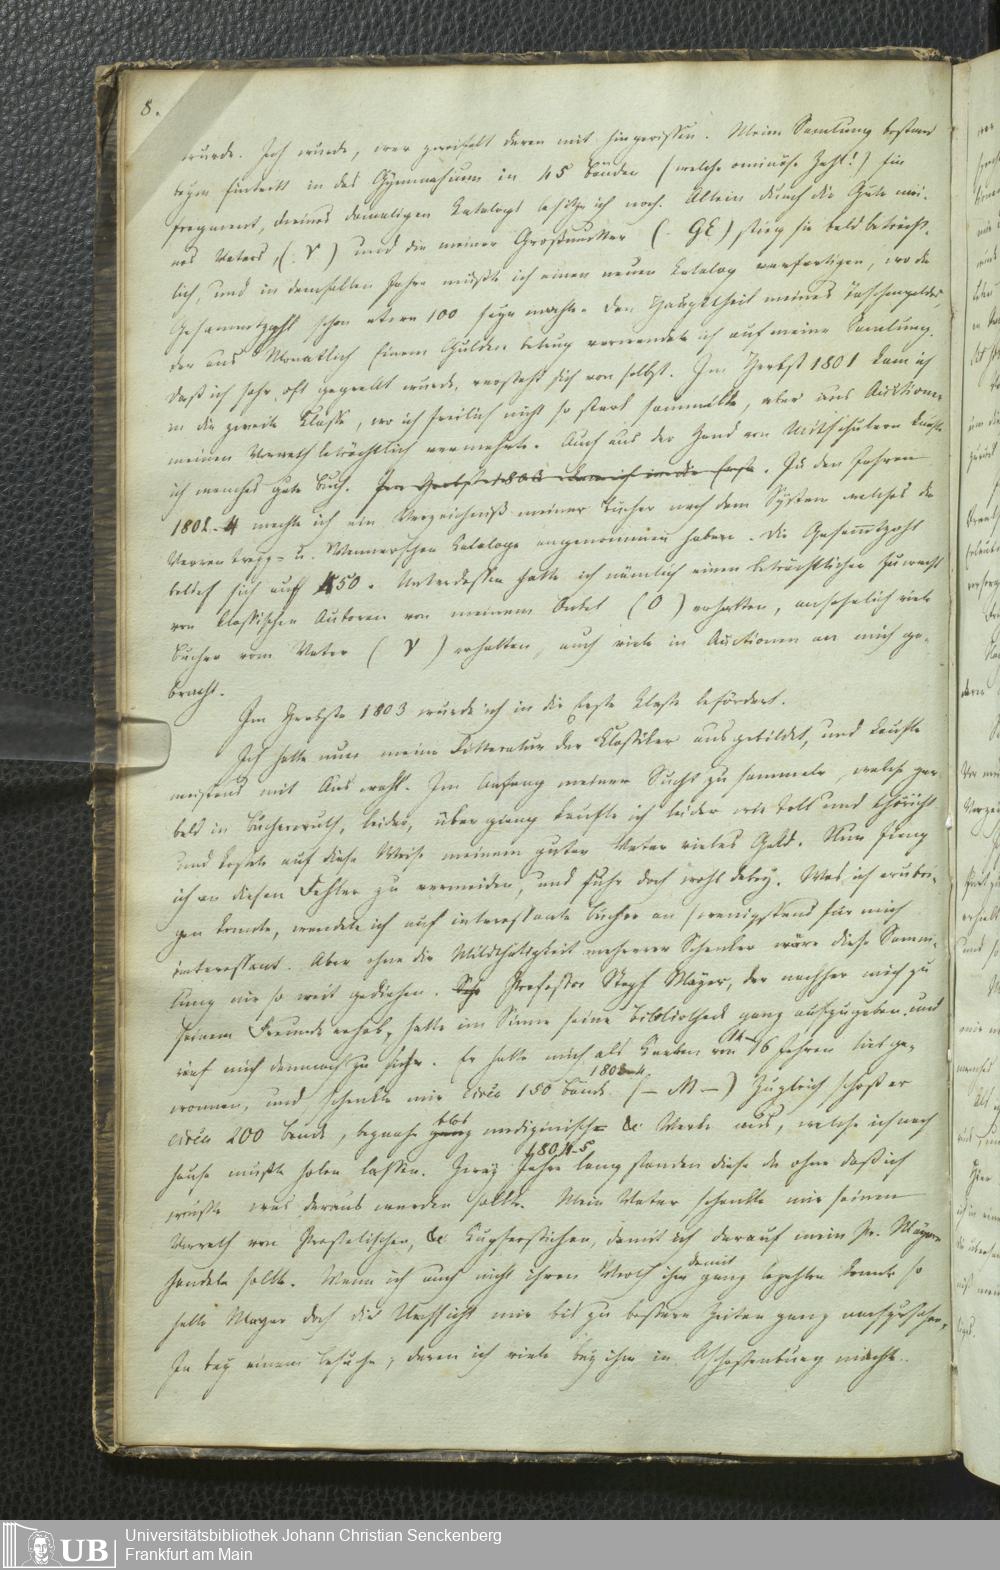 8.
wurde. Ich wurde, wer zweifelt daran mit hingerissen. Meine Samlung bestand
beym Eintritt in das Gymnasium in 45 Bänden (welche ominöse Zahl!) Ein
Fragment, meines damaligen Katalogs besitze ich noch. Allein durch die Güte mei-
nes Vaters, (. V ) und die meiner Großmutter ( . GE) stieg sie bald beträcht-
lich, und in demselben Jahre mußte ich einen neuen Katalog verfertigen, wo die
Gesammtzahl schon etwa 100 seyn mochte. Den Haupttheil meines Taschengeldes,
der aus Monatlich Einem Gulden betrug verwendete ich auf meine Samlung.
Daß ich sehr oft geprellt wurde, versteht sich von selbst. Im Herbst 1801 kam ich
in die zweite Klasse, wo ich freilich nicht so stark sammelte, aber aus Auktionen
meinen Vorrath beträchtlich vermehrte. Auch aus der Hand von Mitschülern kaufte
ich manches gute Buch. Im Herbste 1803 kam ich in die Erste. In den Jahren
1802-4 machte ich ein Verzeichniß meiner Bücher nach dem System welches die
Varrentrapp- u. Wennerschen Kataloge angenommen haben. Die Gesammtzahl
belief sich auf 450. Unterdessen hatte ich nämlich einen beträchtlichen Zuwachs
von klassischen Autoren von meinem Onkel ( O ) erhalten, ansehnlich viele
Bücher vom Vater ( V ) erhalten, auch viele in Auctionen an mich ge-
bracht.
Im Herbste 1803 wurde ich in die Erste Klasse befördert.
Ich hatte nun meine Litteratur der Klassiker ausgebildet, und kaufte
meistens mit Auswahl. Im Anfang meiner Sucht zu sammeln, welche gar
bald in Bücherwuth, leider, über gieng kaufte ich leider wie toll und thöricht
und kostete auf diese Weise meinem guten Vater vieles Geld. Nun fieng
ich an diesen Fehler zu vermeiden, und fuhr doch wohl dabey. Was ich erübri-
gen konnte, wendete ich auf interessante Bücher an (wenigstens für mich
interessant. Aber ohne die Mildthätigkeit mehrerer Schenker wäre diese Samm-
lung nie so weit gediehen. Professor Steph Mayer, der nachher mich zu
seinem Freunde erhob, hatte im Sinne seine Bibliothek ganz aufzugeben, und
rief mich demnach zu sich. Er hatte mich als Knaben von 14-16 Jahren lieb ge-
wonnen, und schenkte mir circa 150 Bände 1802-4 (— M —) Zugleich schoß er
circa 200 Bände, beynahe ganz blos medizinische &c Werke aus, welche ich nach
Hause mußte holen lassen. Zwey Jahre 1804-5 lang standen diese da ohne daß ich
wußte was daraus werden sollte. Mein Vater schenkte mir seinen
Vorrath von &c Kupferstichen, damit ich darauf mein Hr. Mayer
handeln sollte. Wenn ich auch nicht ihren Werth ihm damit ganz bezahlen konnte so
hatte Mayer doch die Nachsicht mir bis zu bessern Zeiten ganz nachzusehen,
In bey einem Besuche, deren ich viele bey ihm in Aschaffenburg machte.
UB Universitätsbibliothek Johann Christian Senckenberg
Frankfurt am Main